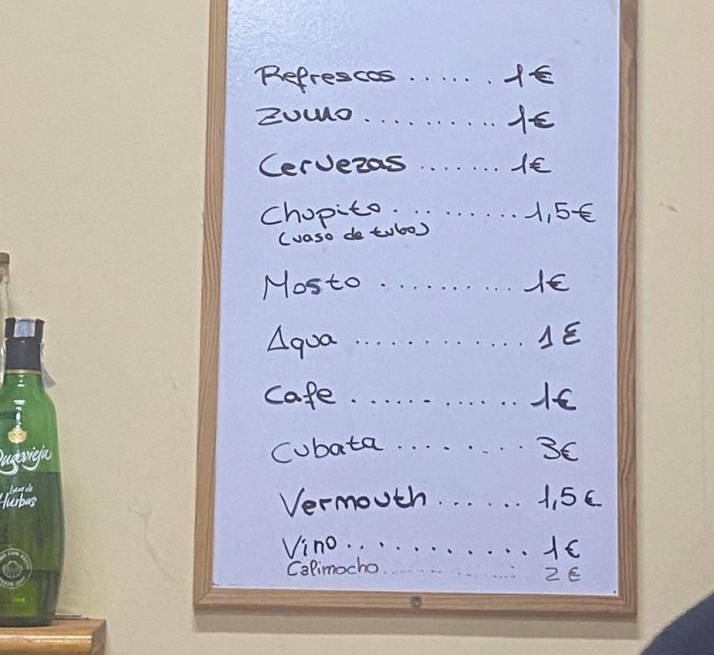 Refrescos ...... 1€
Zumo .......... 1€
Cervezas ....... 1€
Chupito .......... 1,5€
(vaso de tubo)
Mosto .......... 1€
Agua ............ 1€
Cafe ............ 1€
Cubata ........ 3€
Vermouth ...... 1,5€
Vino ............ 1€
Calimocho ............ 2€
Ruavieja
licor de
Hierbas